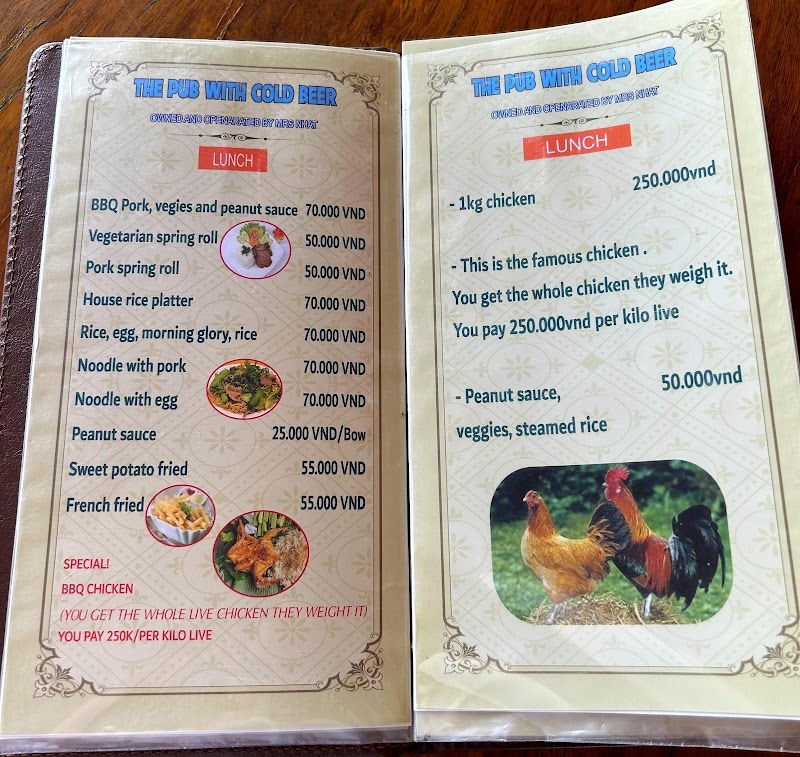 THE PUB WITH COLD BEER
OWNED AND OPENARATED BY MRS NHAT
LUNCH
BBQ Pork, vegies and peanut sauce 70.000 VND
Vegetarian spring roll 50.000 VND
Pork spring roll 50.000 VND
House rice platter 70.000 VND
Rice, egg, morning glory, rice 70.000 VND
Noodle with pork 70.000 VND
Noodle with egg 70.000 VND
Peanut sauce 25.000 VND/Bow
Sweet potato fried 55.000 VND
French fried 55.000 VND
SPECIAL!
BBQ CHICKEN
(YOU GET THE WHOLE LIVE CHICKEN THEY WEIGHT IT)
YOU PAY 250K/PER KILO LIVE
THE PUB WITH COLD BEER
OWNED AND OPENARATED BY MRS NHAT
LUNCH
- 1kg chicken 250.000vnd
- This is the famous chicken .
You get the whole chicken they weigh it.
You pay 250.000vnd per kilo live
- Peanut sauce, 50.000vnd
veggies, steamed rice